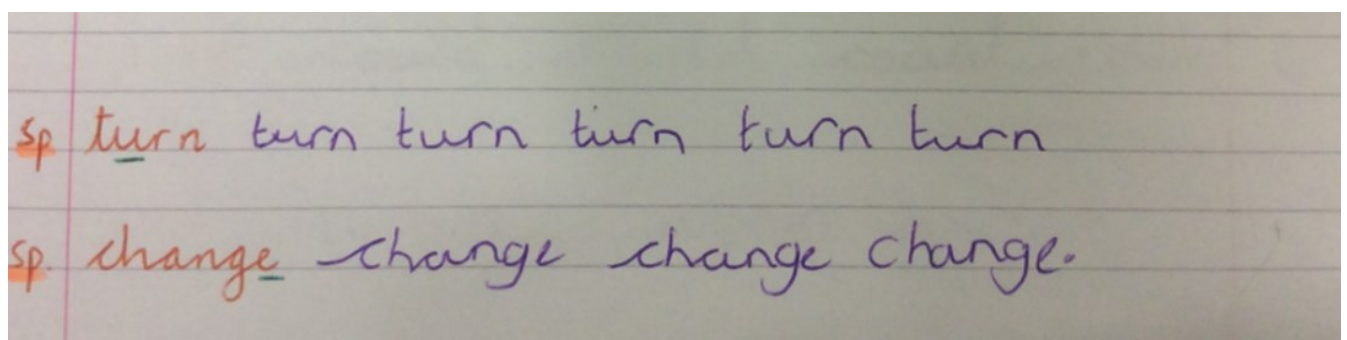 sp turn turn turn turn turn turn
sp. change change change change.